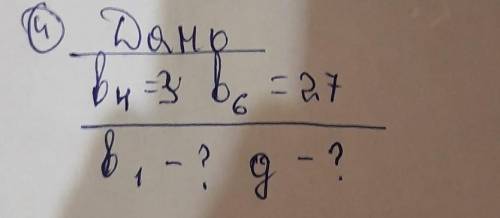 ④ Дано
b₄ = 3 b₆ = 27
b₁ - ? g - ?